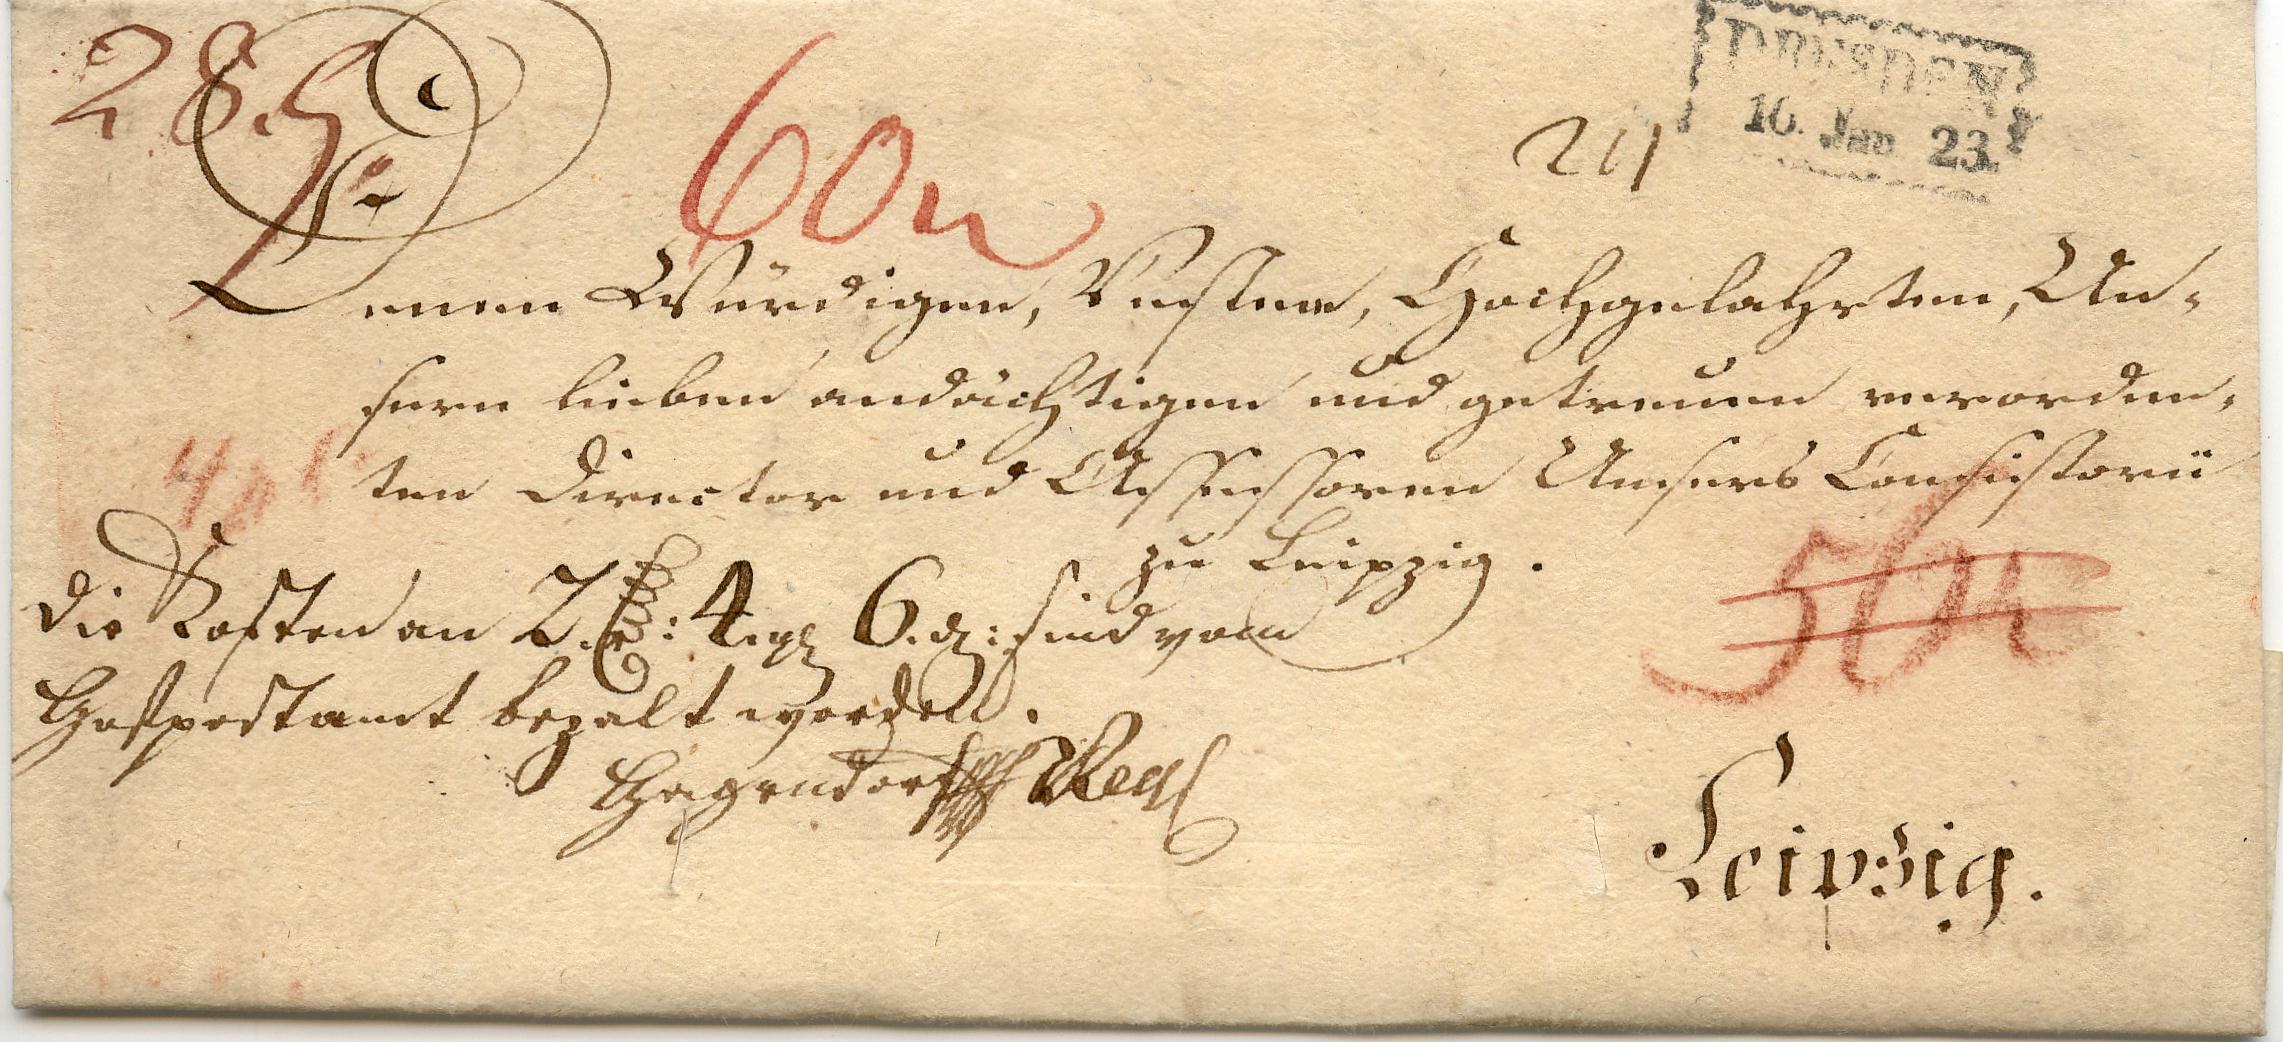 28
60
DRESDEN
16. Jan. 23.
211
Denen Würdigen, Vesten, Hochgelahrten, Un-
sern lieben andächtigen und getreuen verordne-
ten Director und Assessoren Unsers Consistorii
zu Leipzig.
Die Kosten an 2 4 6 sind vom
Hofpostamt bezalt worden.
Leipzig.